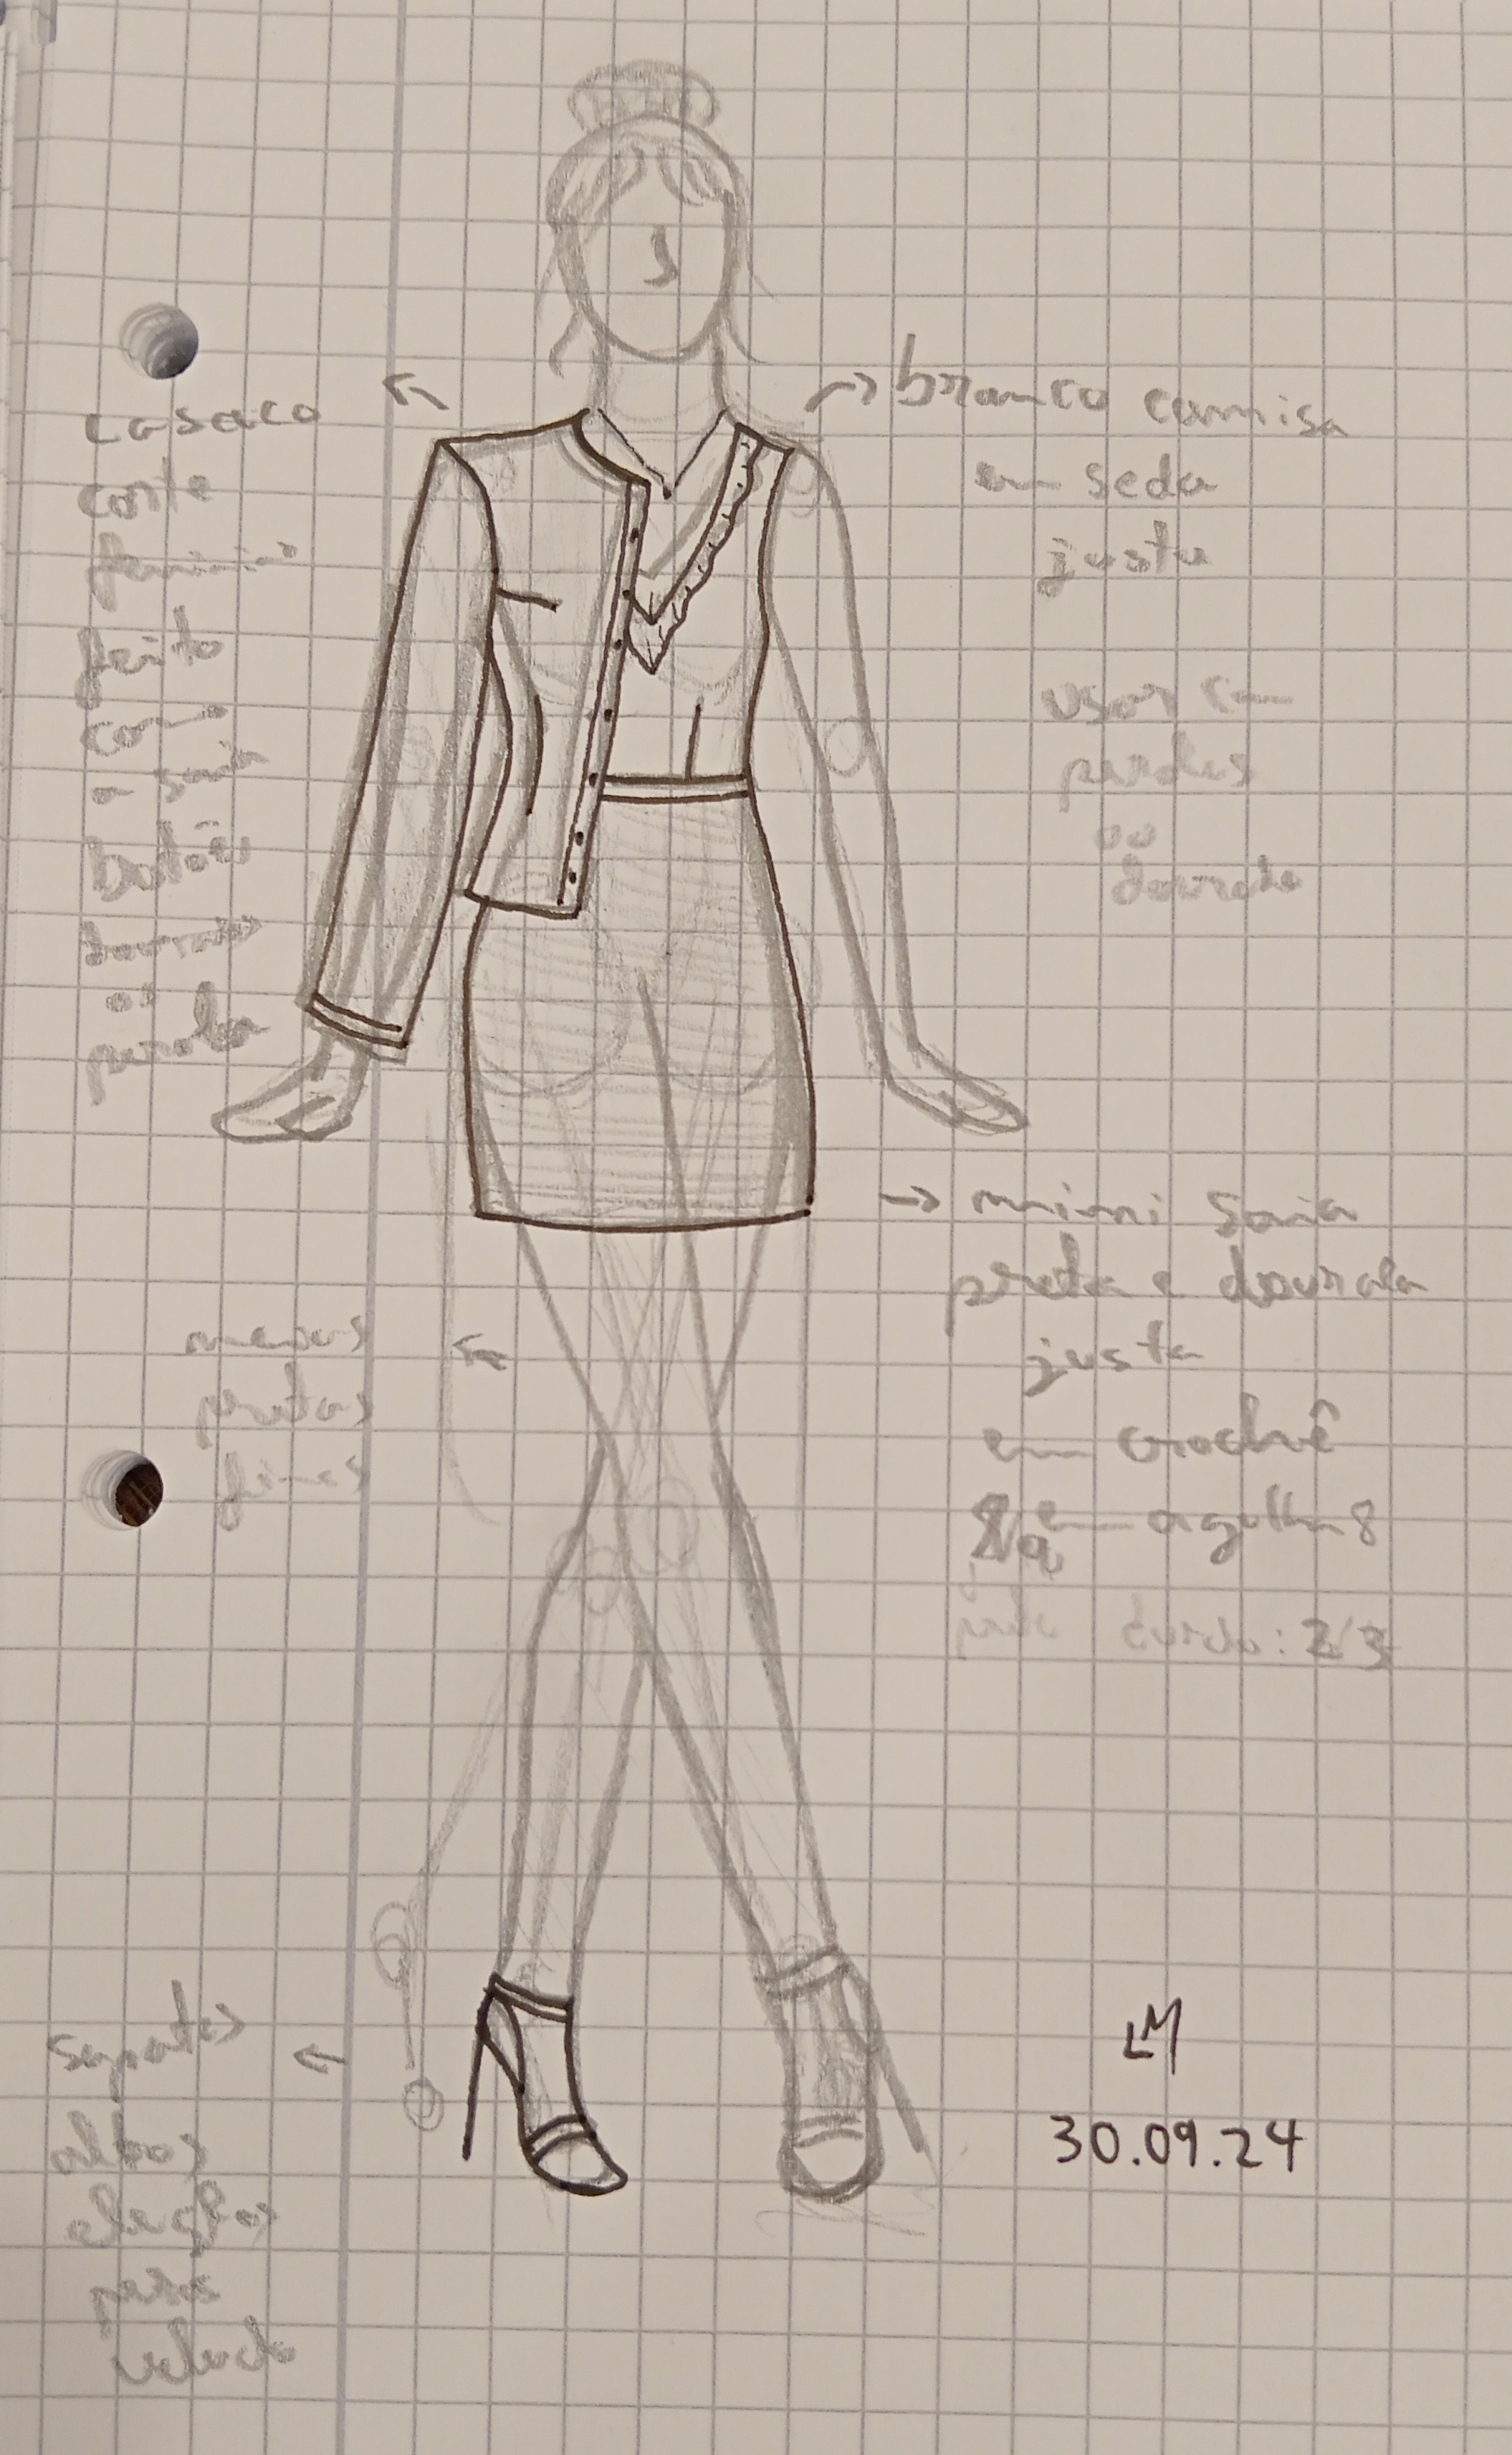 casaco
corte
feminino
feito
com
a saia
botões
dourados
ou
perola
branco camisa
em seda
justa
usar com
perolas
ou
dourado
mini saia
preta e dourada
justa
em crochê
em agulha 8
meias
pretas
finas
sapatos
altos
veludo
LM
30.09.24